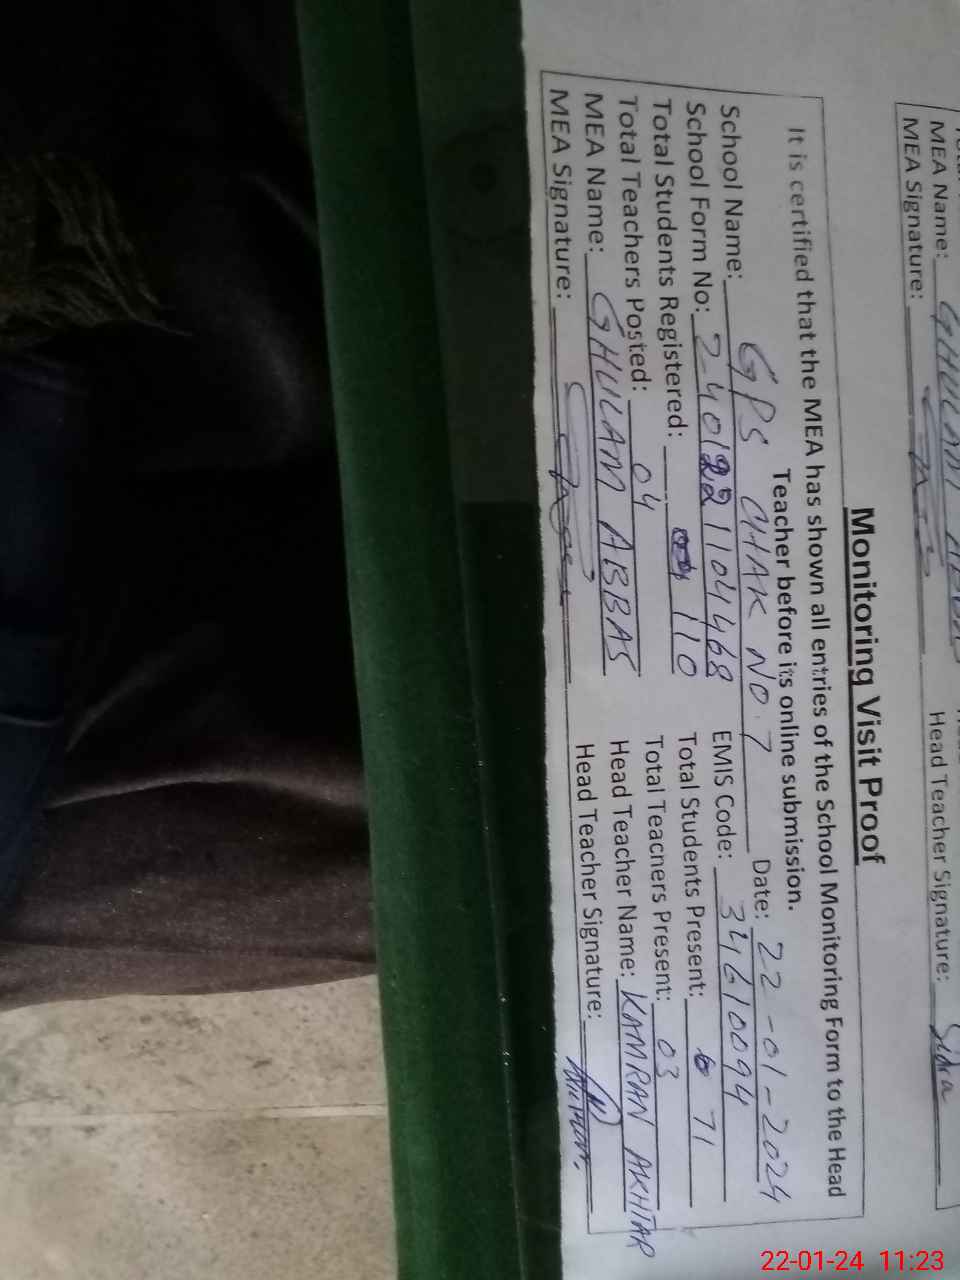 MEA Name: GHULAM ABBAS
MEA Signature: Head Teacher Signature: Sidra
Monitoring Visit Proof
It is certified that the MEA has shown all entries of the School Monitoring Form to the Head
Teacher before its online submission.
School Name: GPS CHAK NO. 7 Date: 22-01-2024
School Form No: EMIS Code: 34610094
Total Students Registered: 110 Total Students Present: 71
Total Teachers Posted: 04 Total Teacners Present: 03
MEA Name: GHULAM ABBAS Head Teacher Name: KAMRAN AKHTAR
MEA Signature: Head Teacher Signature:
22-01-24 11:23